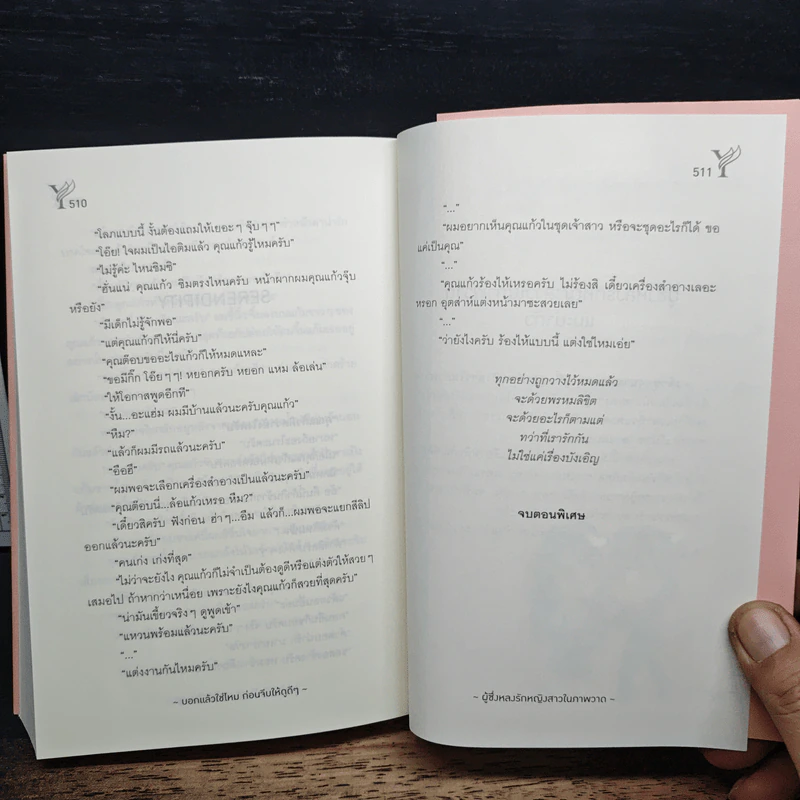 510
“โลภแบบนี้ งั้นต้องแถมให้เยอะๆ จุ๊บๆๆ”
“โอ๊ย! ใจผมเป็นไอติมแล้ว คุณแก้วรู้ไหมครับ”
“ไม่รู้ค่ะ ไหนชิมซิ”
“ฮั่นแน่ คุณแก้ว ชิมตรงไหนครับ หน้าผากผมคุณแก้วจุ๊บ
หรือยัง”
“มีเด็กไม่รู้จักพอ”
“แต่คุณแก้วก็ให้นี่ครับ”
“คุณต๊อบขออะไรแก้วก็ให้หมดแหละ”
“ขอมีกิ๊ก โอ๊ยๆๆ! หยอกครับ หยอก แหม ล้อเล่น”
“ให้โอกาสพูดอีกที”
“งั้น...อะแฮ่ม ผมมีบ้านแล้วนะครับคุณแก้ว”
“หืม?”
“แล้วก็ผมมีรถแล้วนะครับ”
“อือฮึ”
“ผมพอจะเลือกเครื่องสำอางเป็นแล้วนะครับ”
“คุณต๊อบนี่...ล้อแก้วเหรอ หืม?”
“เดี๋ยวสิครับ ฟังก่อน ฮ่าๆ...อืม แล้วก็...ผมพอจะแยกสีลิป
ออกแล้วนะครับ”
“คนเก่ง เก่งที่สุด”
“ไม่ว่าจะยังไง คุณแก้วก็ไม่จำเป็นต้องดูดีหรือแต่งตัวให้สวยๆ
เสมอไป ถ้าหากว่าเหนื่อย เพราะยังไงคุณแก้วก็สวยที่สุดครับ”
“น่ามันเขี้ยวจริงๆ ดูพูดเข้า”
“แหวนพร้อมแล้วนะครับ”
“...”
“แต่งงานกันไหมครับ”
~ บอกแล้วใช่ไหม ก่อนจีบให้ดูดีๆ ~
511
“...”
“ผมอยากเห็นคุณแก้วในชุดเจ้าสาว หรือจะชุดอะไรก็ได้ ขอ
แค่เป็นคุณ”
“...”
“คุณแก้วร้องไห้เหรอครับ ไม่ร้องสิ เดี๋ยวเครื่องสำอางเลอะ
หรอก อุตส่าห์แต่งหน้ามาซะสวยเลย”
“...”
“ว่ายังไงครับ ร้องไห้แบบนี้ แต่งใช่ไหมเอ่ย”
ทุกอย่างถูกวางไว้หมดแล้ว
จะด้วยพรหมลิขิต
จะด้วยอะไรก็ตามแต่
ทว่าที่เรารักกัน
ไม่ใช่แค่เรื่องบังเอิญ
จบตอนพิเศษ
~ ผู้ซึ่งหลงรักหญิงสาวในภาพวาด ~